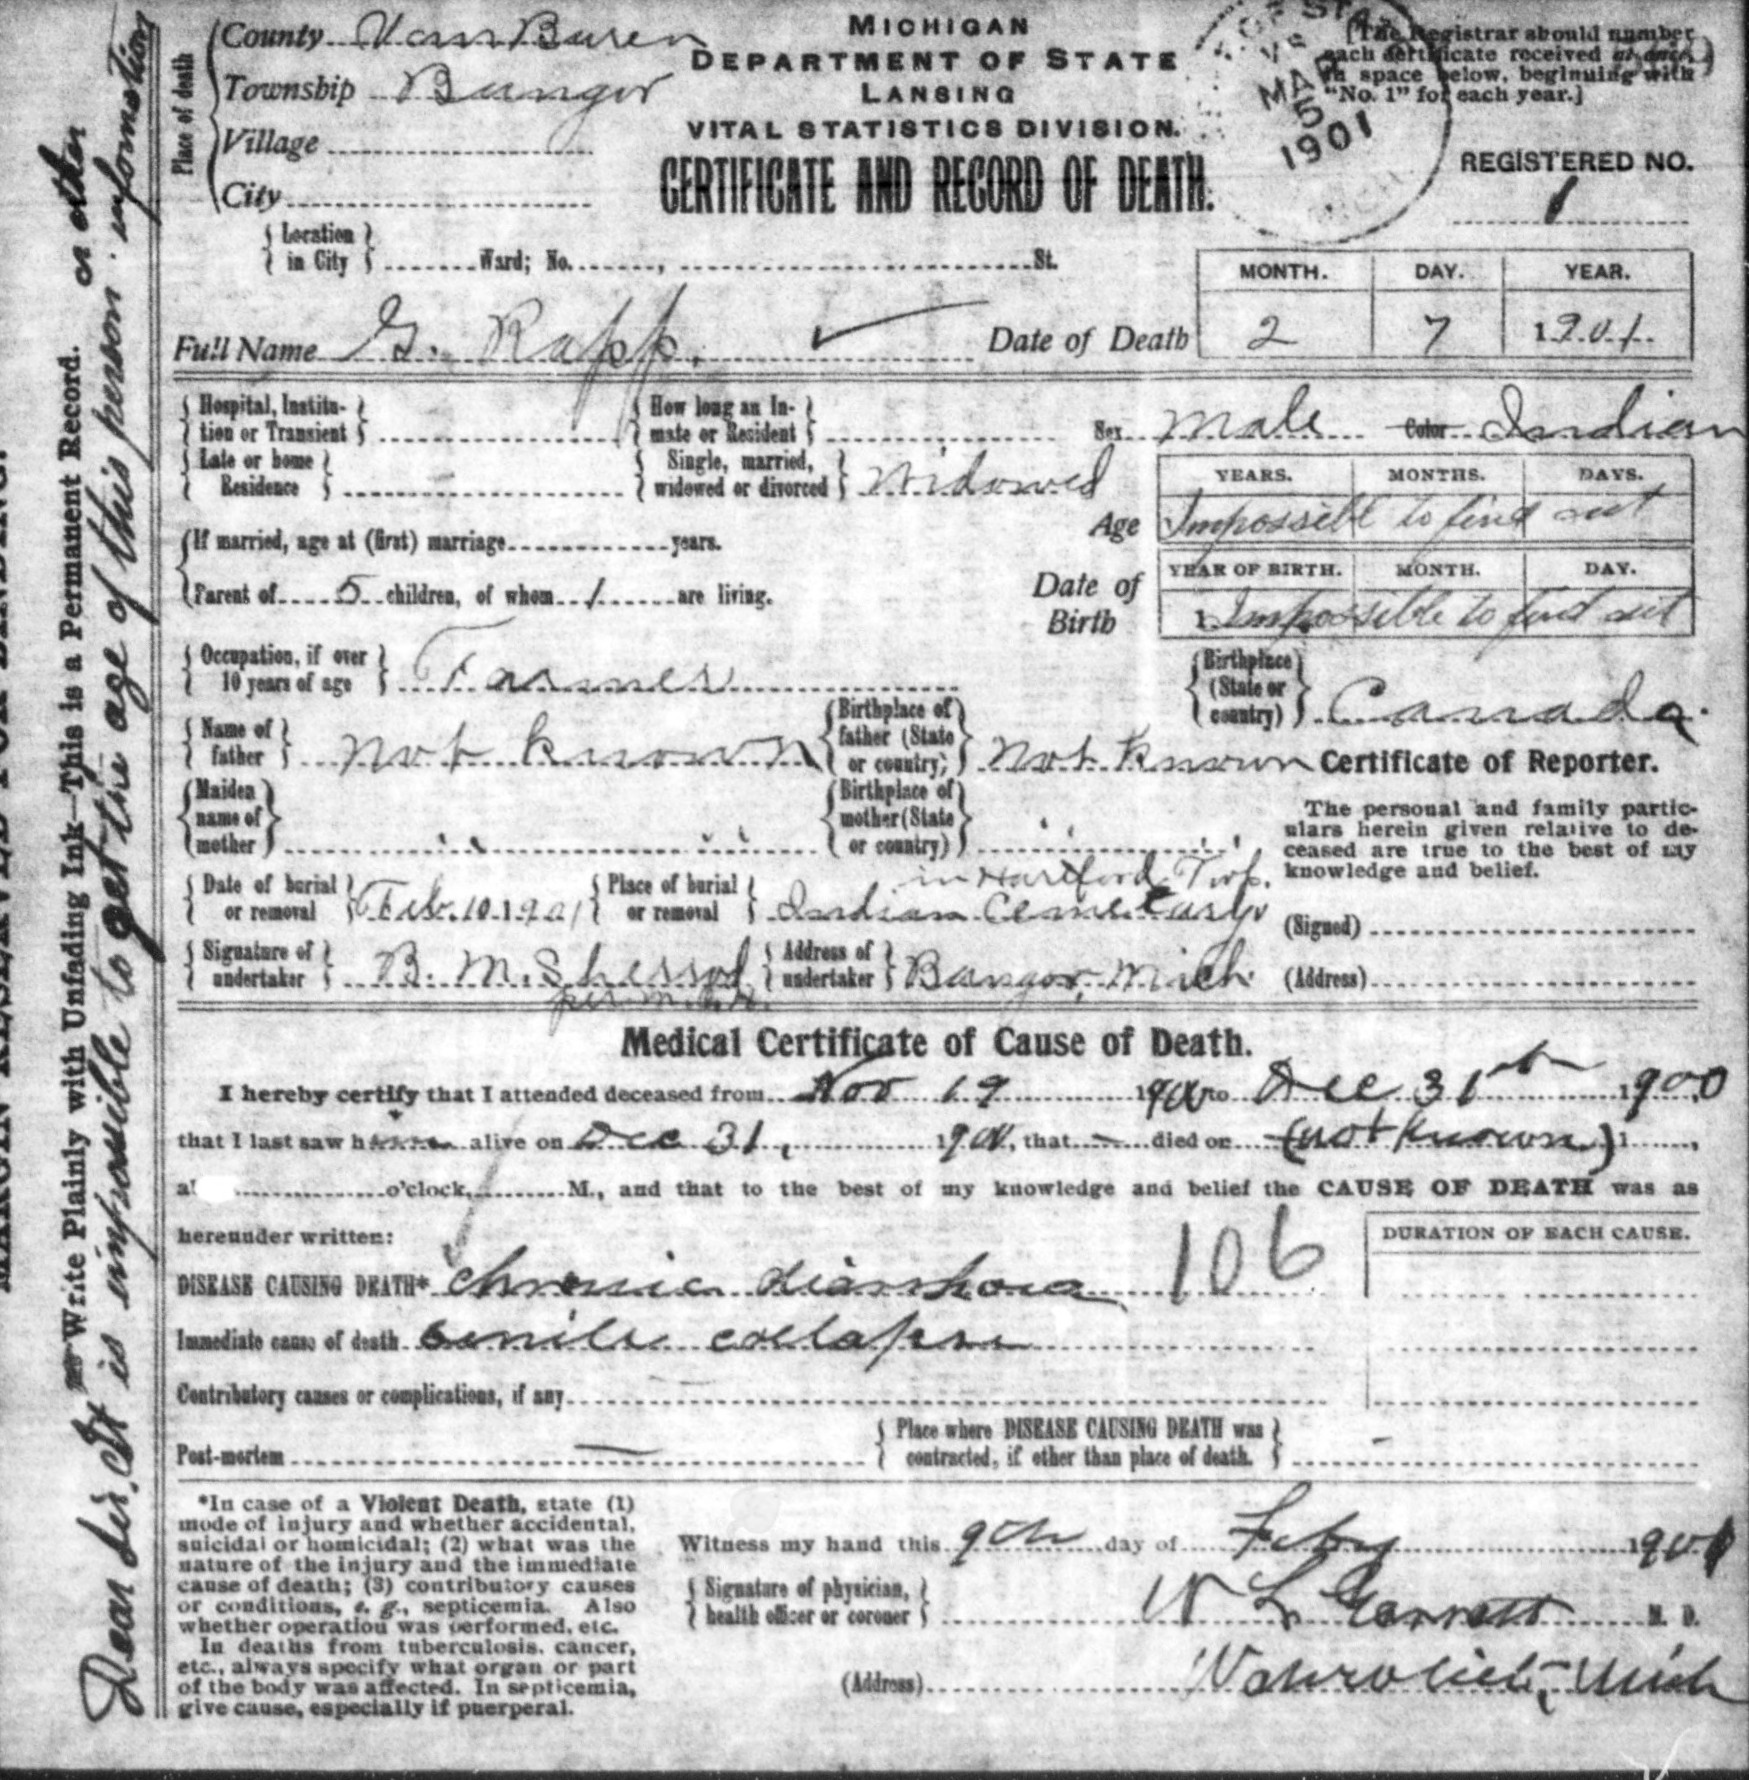 County Van Buren
Township Bangor
Village
City
Place of death
MICHIGAN
DEPARTMENT OF STATE
LANSING
VITAL STATISTICS DIVISION.
CERTIFICATE AND RECORD OF DEATH.
OF STA
MAR
5
1901
[The Registrar should number
each certificate received
in space below, beginning with
"No. 1" for each year.]
REGISTERED NO.
1
Location in City Ward; No. , St.
MONTH. DAY. YEAR.
Full Name G. Rapp. Date of Death 2 7 1901
Hospital, Institution or Transient How long an Inmate or Resident Sex Male Color Indian
Late or home Residence Single, married, widowed or divorced Widowed
YEARS. MONTHS. DAYS.
Age Impossible to find out
If married, age at (first) marriage years.
YEAR OF BIRTH. MONTH. DAY.
Parent of 5 children, of whom 1 are living.
Date of Birth 1 Impossible to find out
Occupation, if over 10 years of age Farmer
Birthplace (State or country) Canada.
Name of father Not Known Birthplace of father (State or country) Not Known
Maiden name of mother " " Birthplace of mother (State or country) " "
Certificate of Reporter.
The personal and family partic-
ulars herein given relative to de-
ceased are true to the best of my
knowledge and belief.
(Signed)
(Address)
in Hartford Twp.
Date of burial or removal Feb. 10 1901 Place of burial or removal Indian Cemetary
Signature of undertaker B. M. Sherrod Address of undertaker Bangor, Mich
per
Medical Certificate of Cause of Death.
I hereby certify that I attended deceased from Nov 19 1900 to Dec 31st 1900
that I last saw him alive on Dec 31, 1900, that — died on (not known) 1 ,
at o'clock, M., and that to the best of my knowledge and belief the CAUSE OF DEATH was as
hereunder written:
106
DURATION OF EACH CAUSE.
DISEASE CAUSING DEATH* Chronic diarrhoea
Immediate cause of death senile collapse
Contributory causes or complications, if any
Post-mortem — Place where DISEASE CAUSING DEATH was contracted, if other than place of death. -
*In case of a Violent Death, state (1)
mode of injury and whether accidental,
suicidal or homicidal; (2) what was the
nature of the injury and the immediate
cause of death; (3) contributory causes
or conditions, e. g., septicemia. Also
whether operation was performed, etc.
In deaths from tuberculosis, cancer,
etc., always specify what organ or part
of the body was affected. In septicemia,
give cause, especially if puerperal.
Witness my hand this 9th day of Feby 1901
Signature of physician, health officer or coroner W L Garrett M. D.
(Address) Mich
MARGIN RESERVED FOR BINDING.
Write Plainly with Unfading Ink—This is a Permanent Record.
Dear Sir. It is impossible to get the age of this person or other information